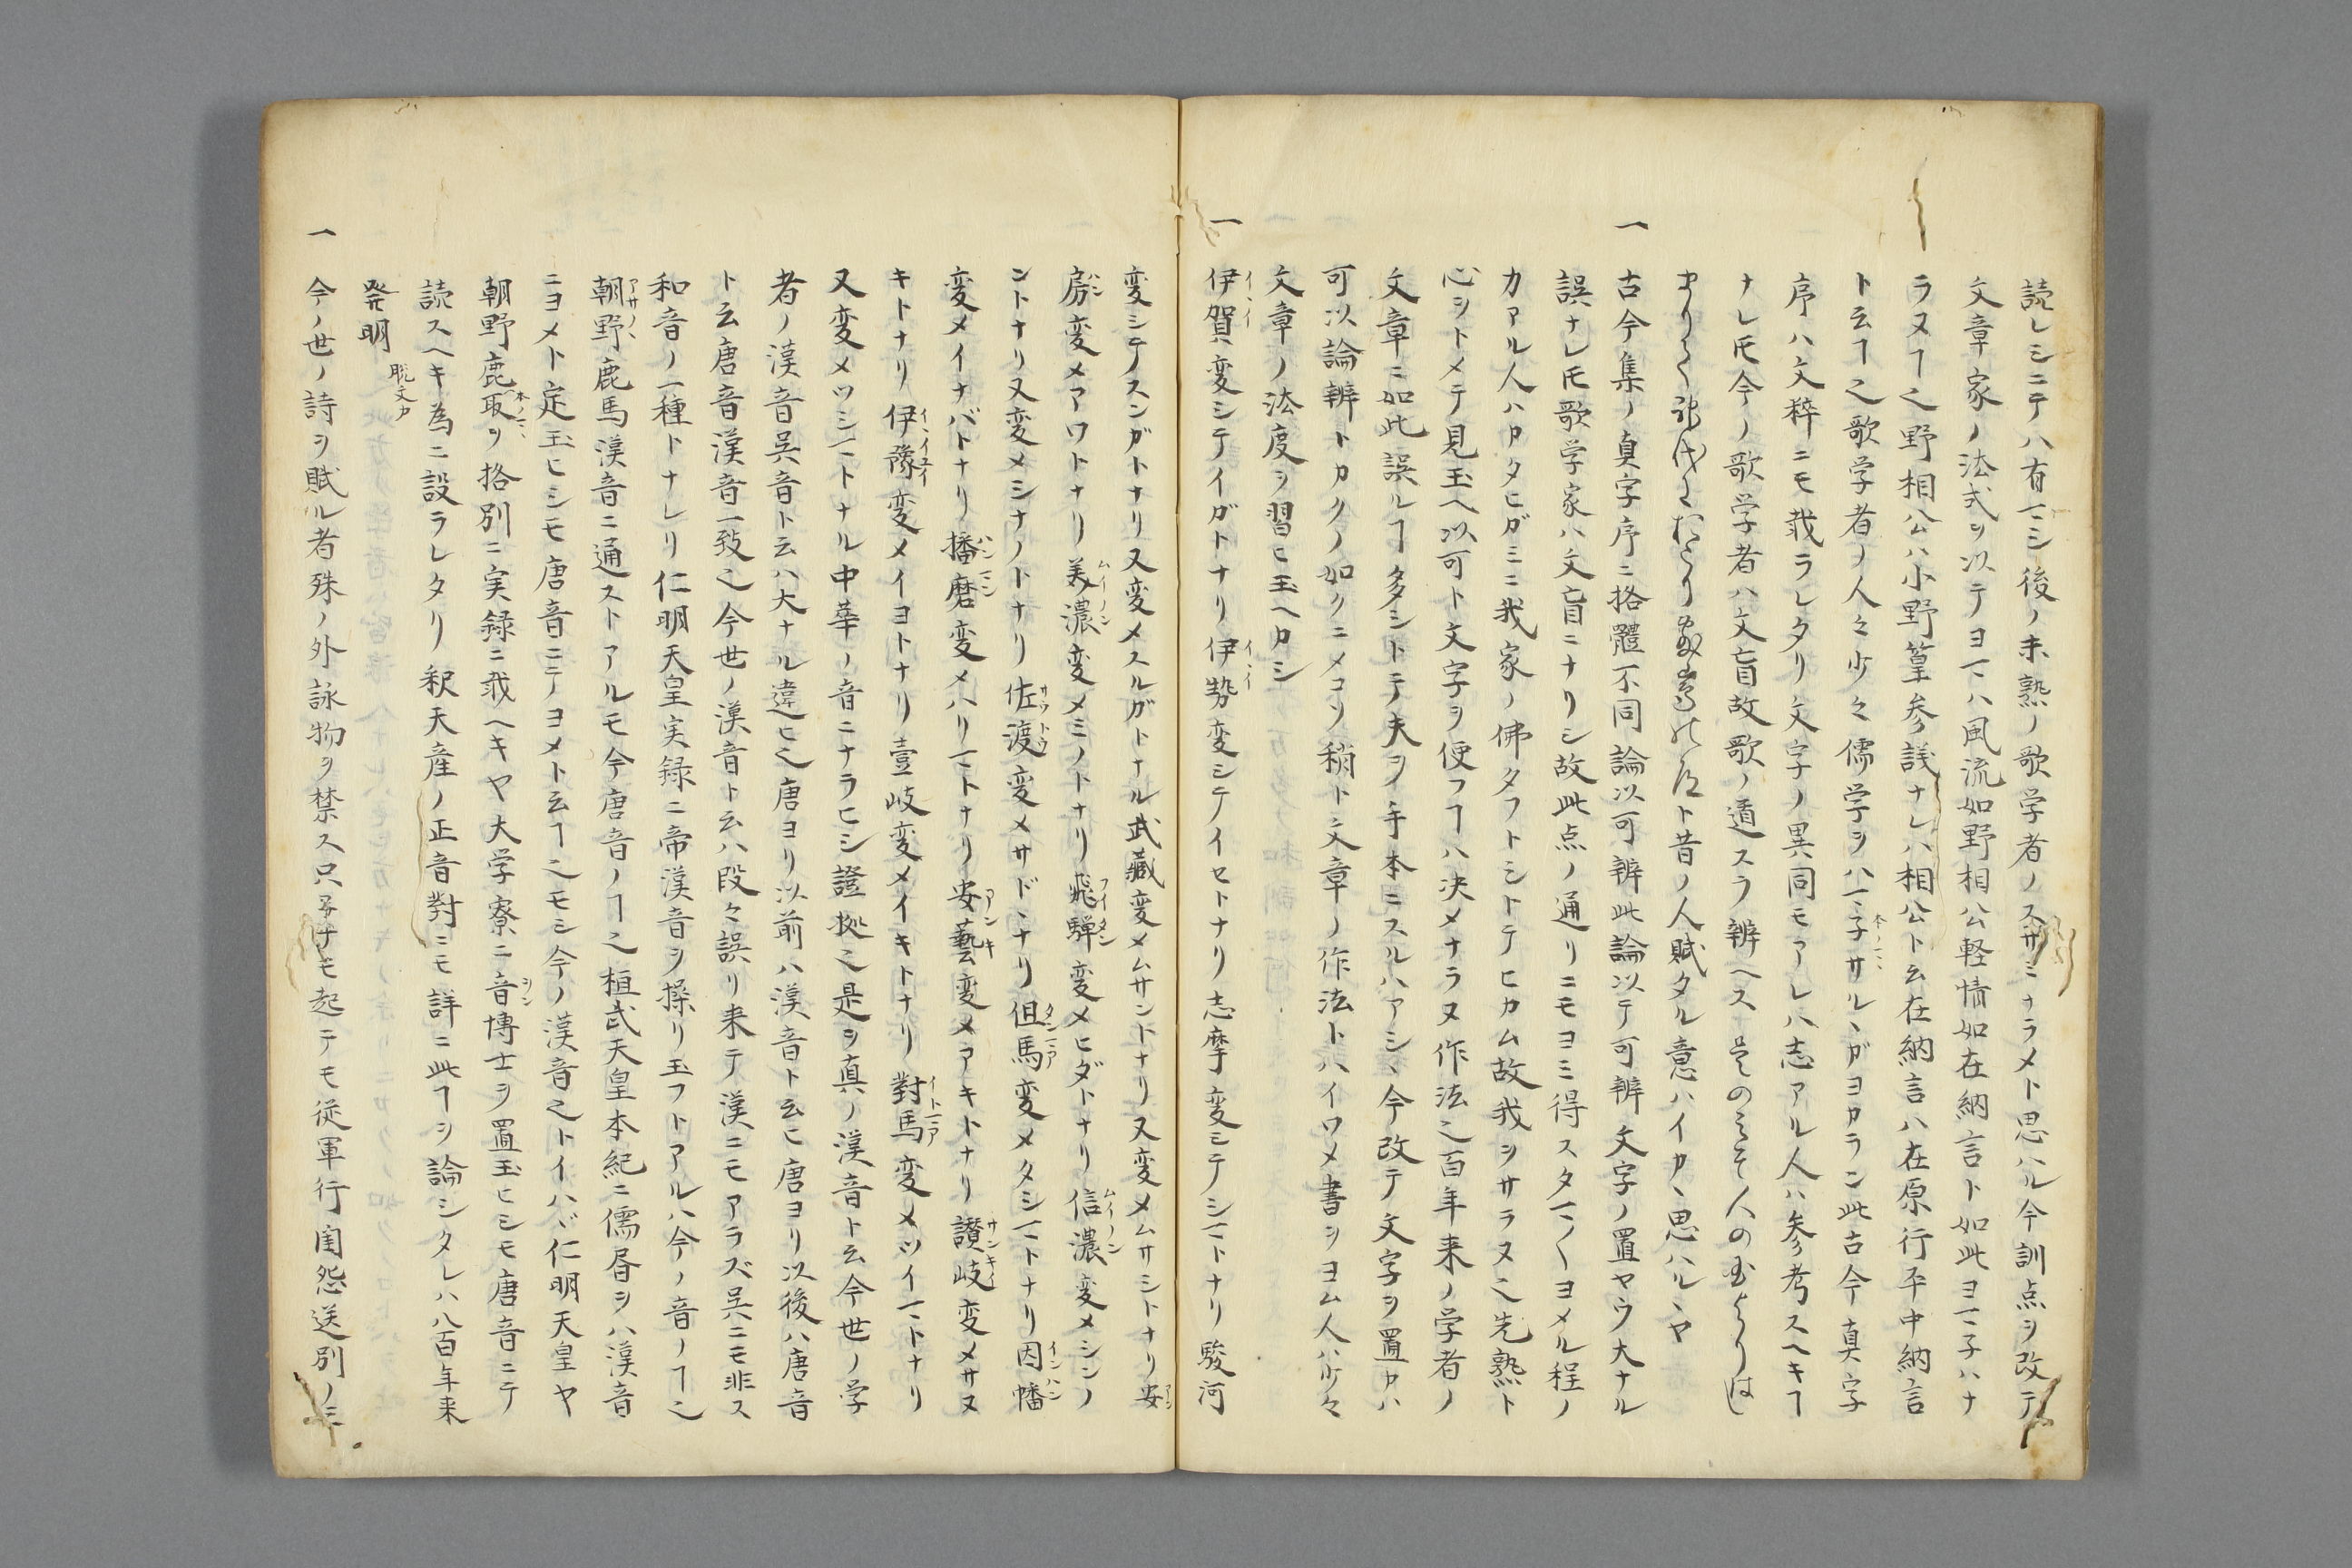 読レシニテハ有マシ後ノ未熟ノ歌学者ノスサミナラメト思ハル今訓点ヲ改テ
文章家ノ法式ヲ以テヨマハ風流如野相公軽情如在納言ト如此ヨマ子ハナ
ラヌヿ也野相公ハ小野篁参議ナレハ相公ト云在納言ハ在原行平中納言
ト云ヿ也歌学者ノ人々少々儒学ヲハマ子サルヽガヨカラン此古今真字
序ハ文粹ニモ載ラレタリ文字ノ異同モアレハ志アル人ハ参考スヘキヿ
ナレ𪜈今ノ歌学者ハ文盲故歌ノ道スラ辨ヘス
ト昔ノ人賦タル意ハイカヽ思ハルヽヤ
一 古今集ノ真字序ニ格體不同論以可辨此論以テ可辨文字ノ置ヤウ大ナル
誤ナレ𪜈歌学家ハ文盲ニナリシ故此点ノ通リニモヨミ得スタマ〱ヨメル程ノ
カアル人ハカタヒガミニ我家ノ佛タフトシトテヒカム故我ヲサラヌ也先熟ト
心ヲトメテ見玉ヘ以可ト文字ヲ便フヿハ決メナラヌ作法也百年来ノ学者ノ
文章ニ如此誤ルヿ多シトテ夫ヲ手本ニスルハアシヽ今改テ文字ヲ置カハ
可以論辨トカクノ如クニメコソ稍ト文章ノ作法トハイワメ書ヲヨム人ハ少々
文章ノ法度ヲ習ヒ玉ヘカシ
一 伊賀変シテイガトナリ伊勢変シテイセトナリ志摩変シテシマトナリ駿河
変シテスンガトナリ又変メスルガトナル武藏変メムサントナリ又変メムサシトナリ安
房変メアワトナリ美濃変メミノトナリ飛騨変メヒダトナリ信濃変メシンノ
ントナリ又変メシナノトナリ佐渡変メサドヽナリ但馬変メタシマトナリ因幡
変メイナバトナリ播磨変メハリマトナリ安藝変メアキトナリ讃岐変メサヌ
キトナリ伊豫変メイヨトナリ壹岐変メイキトナリ對馬変メツイマトナリ
又変メツシマトナル中華ノ音ニナラヒシ證拠也是ヲ真ノ漢音ト云今世ノ学
者ノ漢音呉音ト云ハ大ナル違ヒ也唐ヨリ以前ハ漢音ト云ヒ唐ヨリ以後ハ唐音
ト云唐音漢音一致也今世ノ漢音ト云ハ段々誤リ来テ漢ニモアラズ呉ニモ非ス
和音ノ一種トナレリ仁明天皇実録ニ帝漢音ヲ操リ玉フトアルハ今ノ音ノヿ也
朝野鹿馬漢音ニ通ストアルモ今唐音ノヿ也桓武天皇本紀ニ儒者ヲハ漢音
ニヨメト定玉ヒシモ唐音ニテヨメト云ヿ也モシ今ノ漢音也トイハヾ仁明天皇ヤ
朝野鹿取ヲ格別ニ実録ニ載ヘキヤ大学寮ニ音博士ヲ置玉ヒシモ唐音ニテ
読スヘキ為ニ設ラレタリ釈天産ノ正音對ニモ詳ニ此ヿヲ論シタレハ八百年来
発明 脱文カ
一 今ノ世ノ詩ヲ賦ル者殊ノ外詠物ヲ禁ス只子ナモ起テモ従軍行閨怨送別ノミ